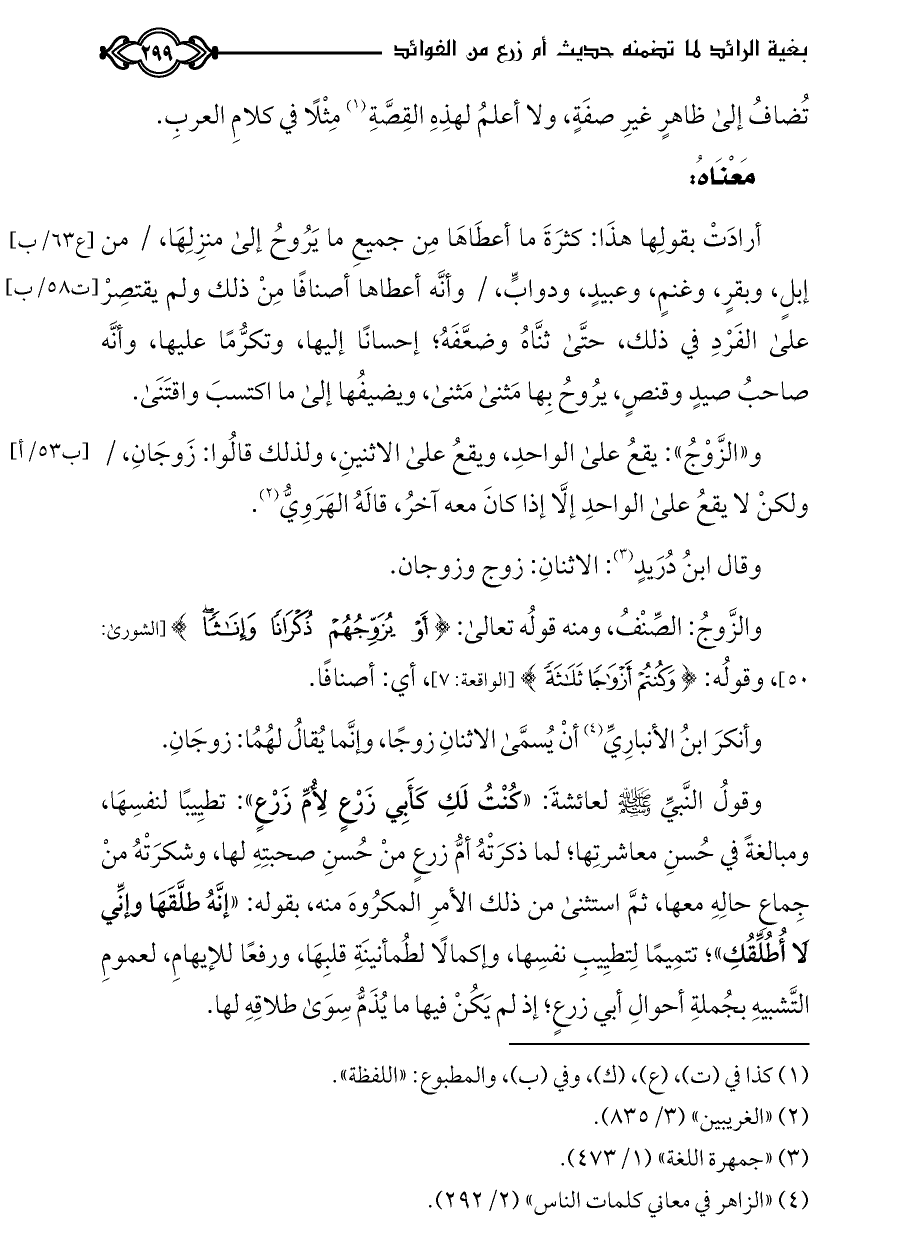 بغية الرائد لما تضمنه حديث أم زرع من الفوائد ٢٩٩
تُضافُ إلىٰ ظاهرٍ غيرِ صفَةٍ، ولا أعلمُ لهذِهِ القِصَّةِ(١) مِثْلًا في كلامِ العربِ.
مَعْنَاهُ:
أرادَتْ بقولِها هذَا: كثرَةَ ما أعطَاهَا مِن جميعِ ما يَرُوحُ إلىٰ منزِلِهَا، / من [ع٦٣/ ب]
إبلٍ، وبقرٍ، وغنمٍ، وعبيدٍ، ودوابٍّ، / وأنَّه أعطاها أصنافًا مِنْ ذلك ولم يقتصِرْ [ت٥٨/ ب]
علىٰ الفَرْدِ في ذلك، حتَّىٰ ثنَّاهُ وضعَّفَهُ؛ إحسانًا إليها، وتكرُّمًا عليها، وأنَّه
صاحبُ صيدٍ وقنصٍ، يرُوحُ بِها مَثنىٰ مَثنىٰ، ويضيفُها إلىٰ ما اكتسبَ واقتَنَىٰ.
و«الزَّوْجُ»: يقعُ علىٰ الواحدِ، ويقعُ علىٰ الاثنينِ، ولذلك قالُوا: زَوجَانِ، / [ب٥٣/ أ]
ولكنْ لا يقعُ علىٰ الواحدِ إلَّا إذا كانَ معه آخرُ، قالَهُ الهَرَوِيُّ(٢).
وقال ابنُ دُرَيدٍ(٣): الاثنانِ: زوج وزوجان.
والزَّوجُ: الصِّنْفُ، ومنه قولُه تعالىٰ: ﴿ أَوۡ يُزَوِّجُهُمۡ ذُكۡرَانٗا وَإِنَٰثٗاۖ ﴾ [الشورىٰ:
٥٠]، وقولُه: ﴿ وَكُنتُمۡ أَزۡوَٰجٗا ثَلَٰثَةٗ ﴾ [الواقعة: ٧]، أي: أصنافًا.
وأنكرَ ابنُ الأنبارِيِّ(٤) أنْ يُسمَّىٰ الاثنانِ زوجًا، وإنَّما يُقالُ لهُمُا: زوجَانِ.
وقولُ النَّبيِّ ﷺ لعائشةَ: «كُنْتُ لَكِ كَأَبِي زَرْعٍ لِأُمِّ زَرْعٍ»: تطيِيبًا لنفسِهَا،
ومبالغةً في حُسنِ معاشرتِها؛ لما ذكرَتْهُ أمُّ زرعٍ منْ حُسنِ صحبتِهِ لها، وشكرَتْهُ منْ
جِماعِ حالِهِ معها، ثمَّ استثنىٰ من ذلك الأمرِ المكرُوهَ منه، بقوله: «إنَّهُ طلَّقَهَا وإنِّي
لَا أُطُلِّقُكِ»؛ تتمِيمًا لِتطيِيبِ نفسِها، وإكمالًا لطُمأنينَةِ قلبِهَا، ورفعًا للإيهامِ، لعمومِ
التَّشبيهِ بجُملةِ أحوالِ أبي زرعٍ؛ إذ لم يَكُنْ فيها ما يُذَمُّ سِوَىٰ طلاقِهِ لها.
(١) كذا في (ت)، (ع)، (ك)، وفي (ب)، والمطبوع: «اللفظة».
(٢) «الغريبين» (٣/ ٨٣٥).
(٣) «جمهرة اللغة» (١/ ٤٧٣).
(٤) «الزاهر في معاني كلمات الناس» (٢/ ٢٩٢).